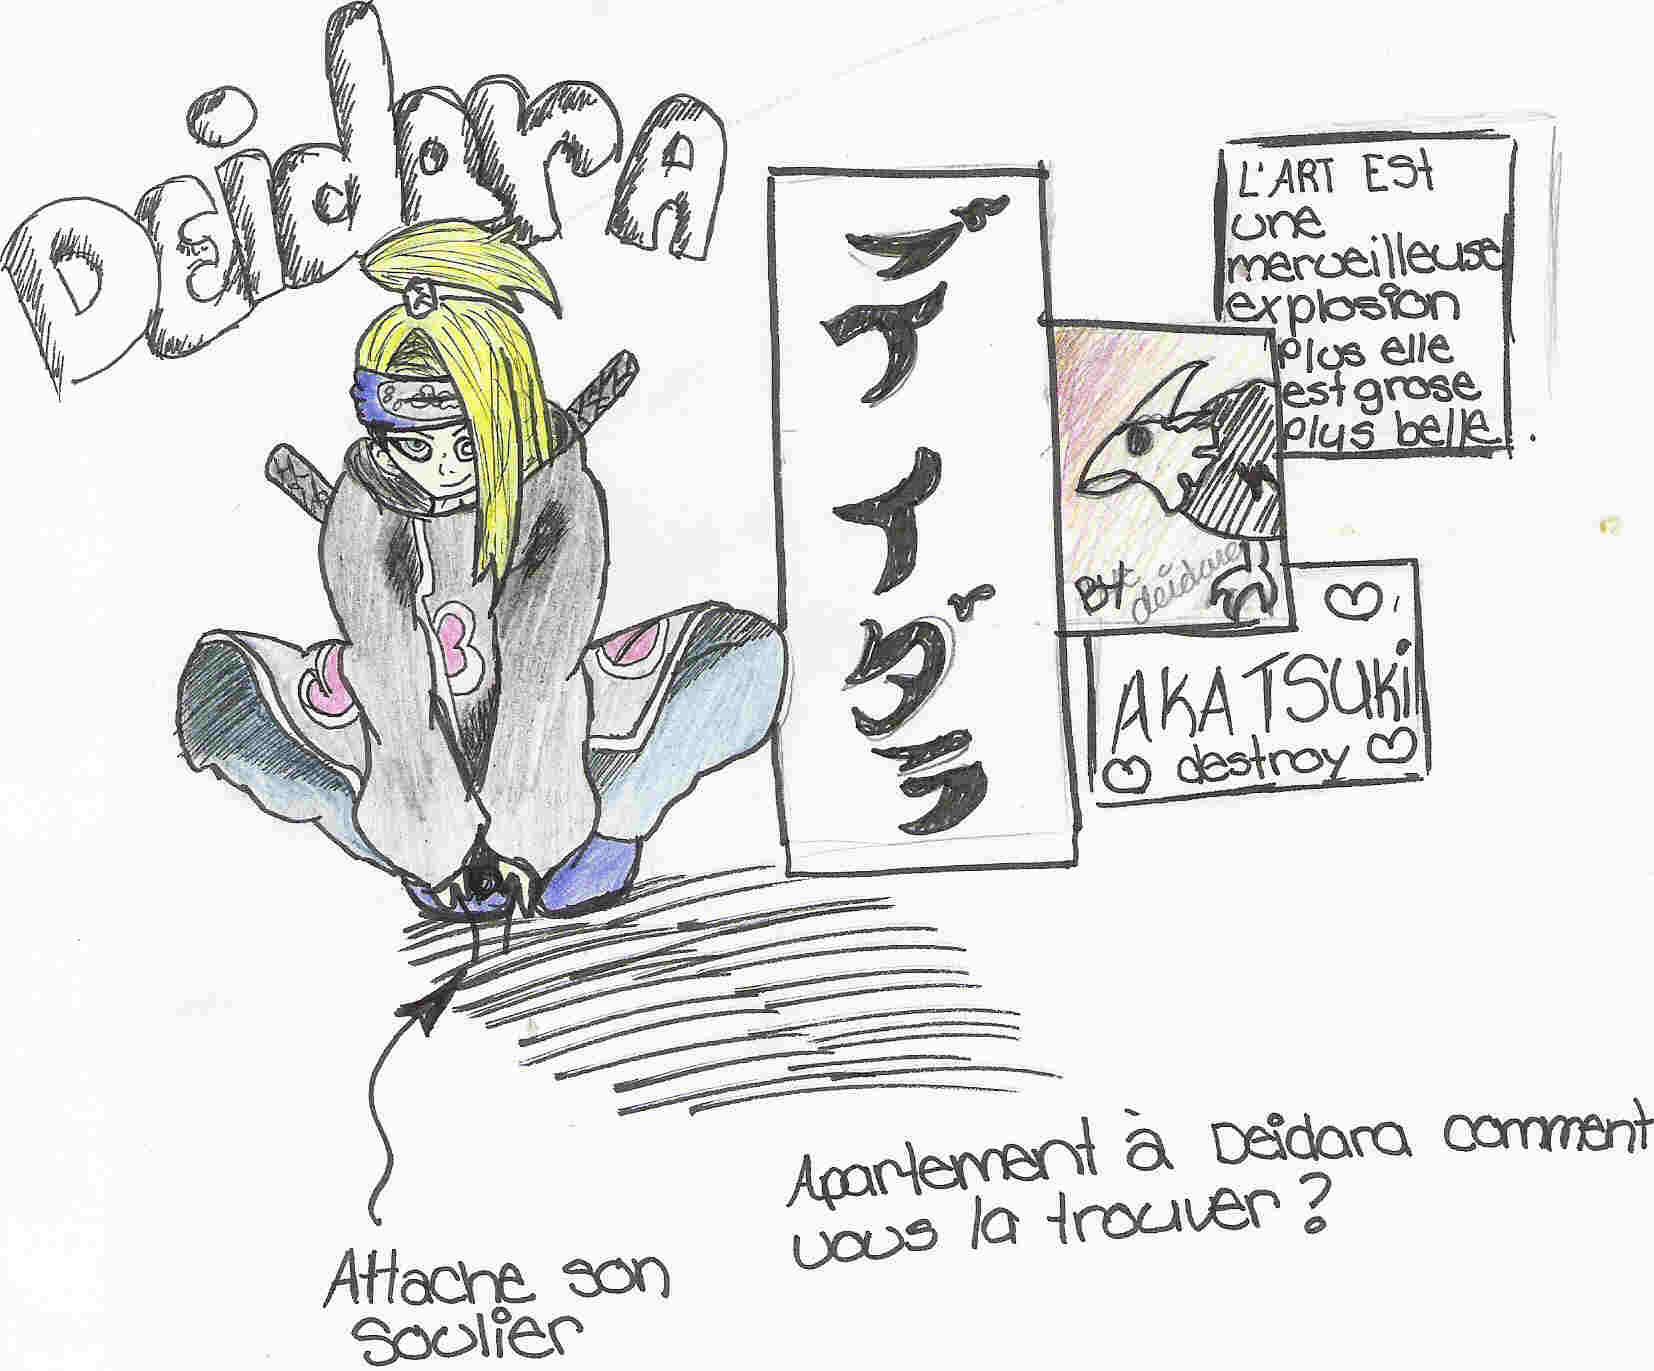 Deidara
デ
イ
ダ
ラ
L'ART Est
une
merveilleuse
explosion
plus elle
est grose
plus belle.
By: deidara
AKATSUKi
destroy
Attache son
soulier
Apartement à Deidara comment
vous la trouver?